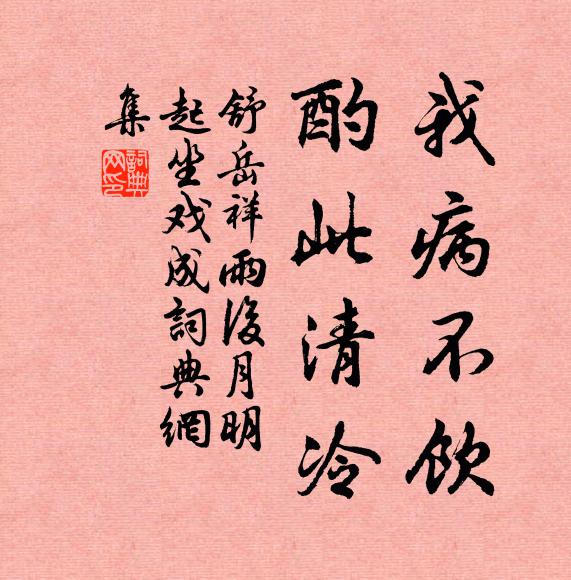 我病不饮
酌此清冷
舒岳祥雨後月明
起坐戏成詞典網
集
詞典
网印